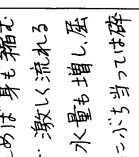 めば身も縮む
、激しく流れる
水量も増し、屈
にぶち当っては砕